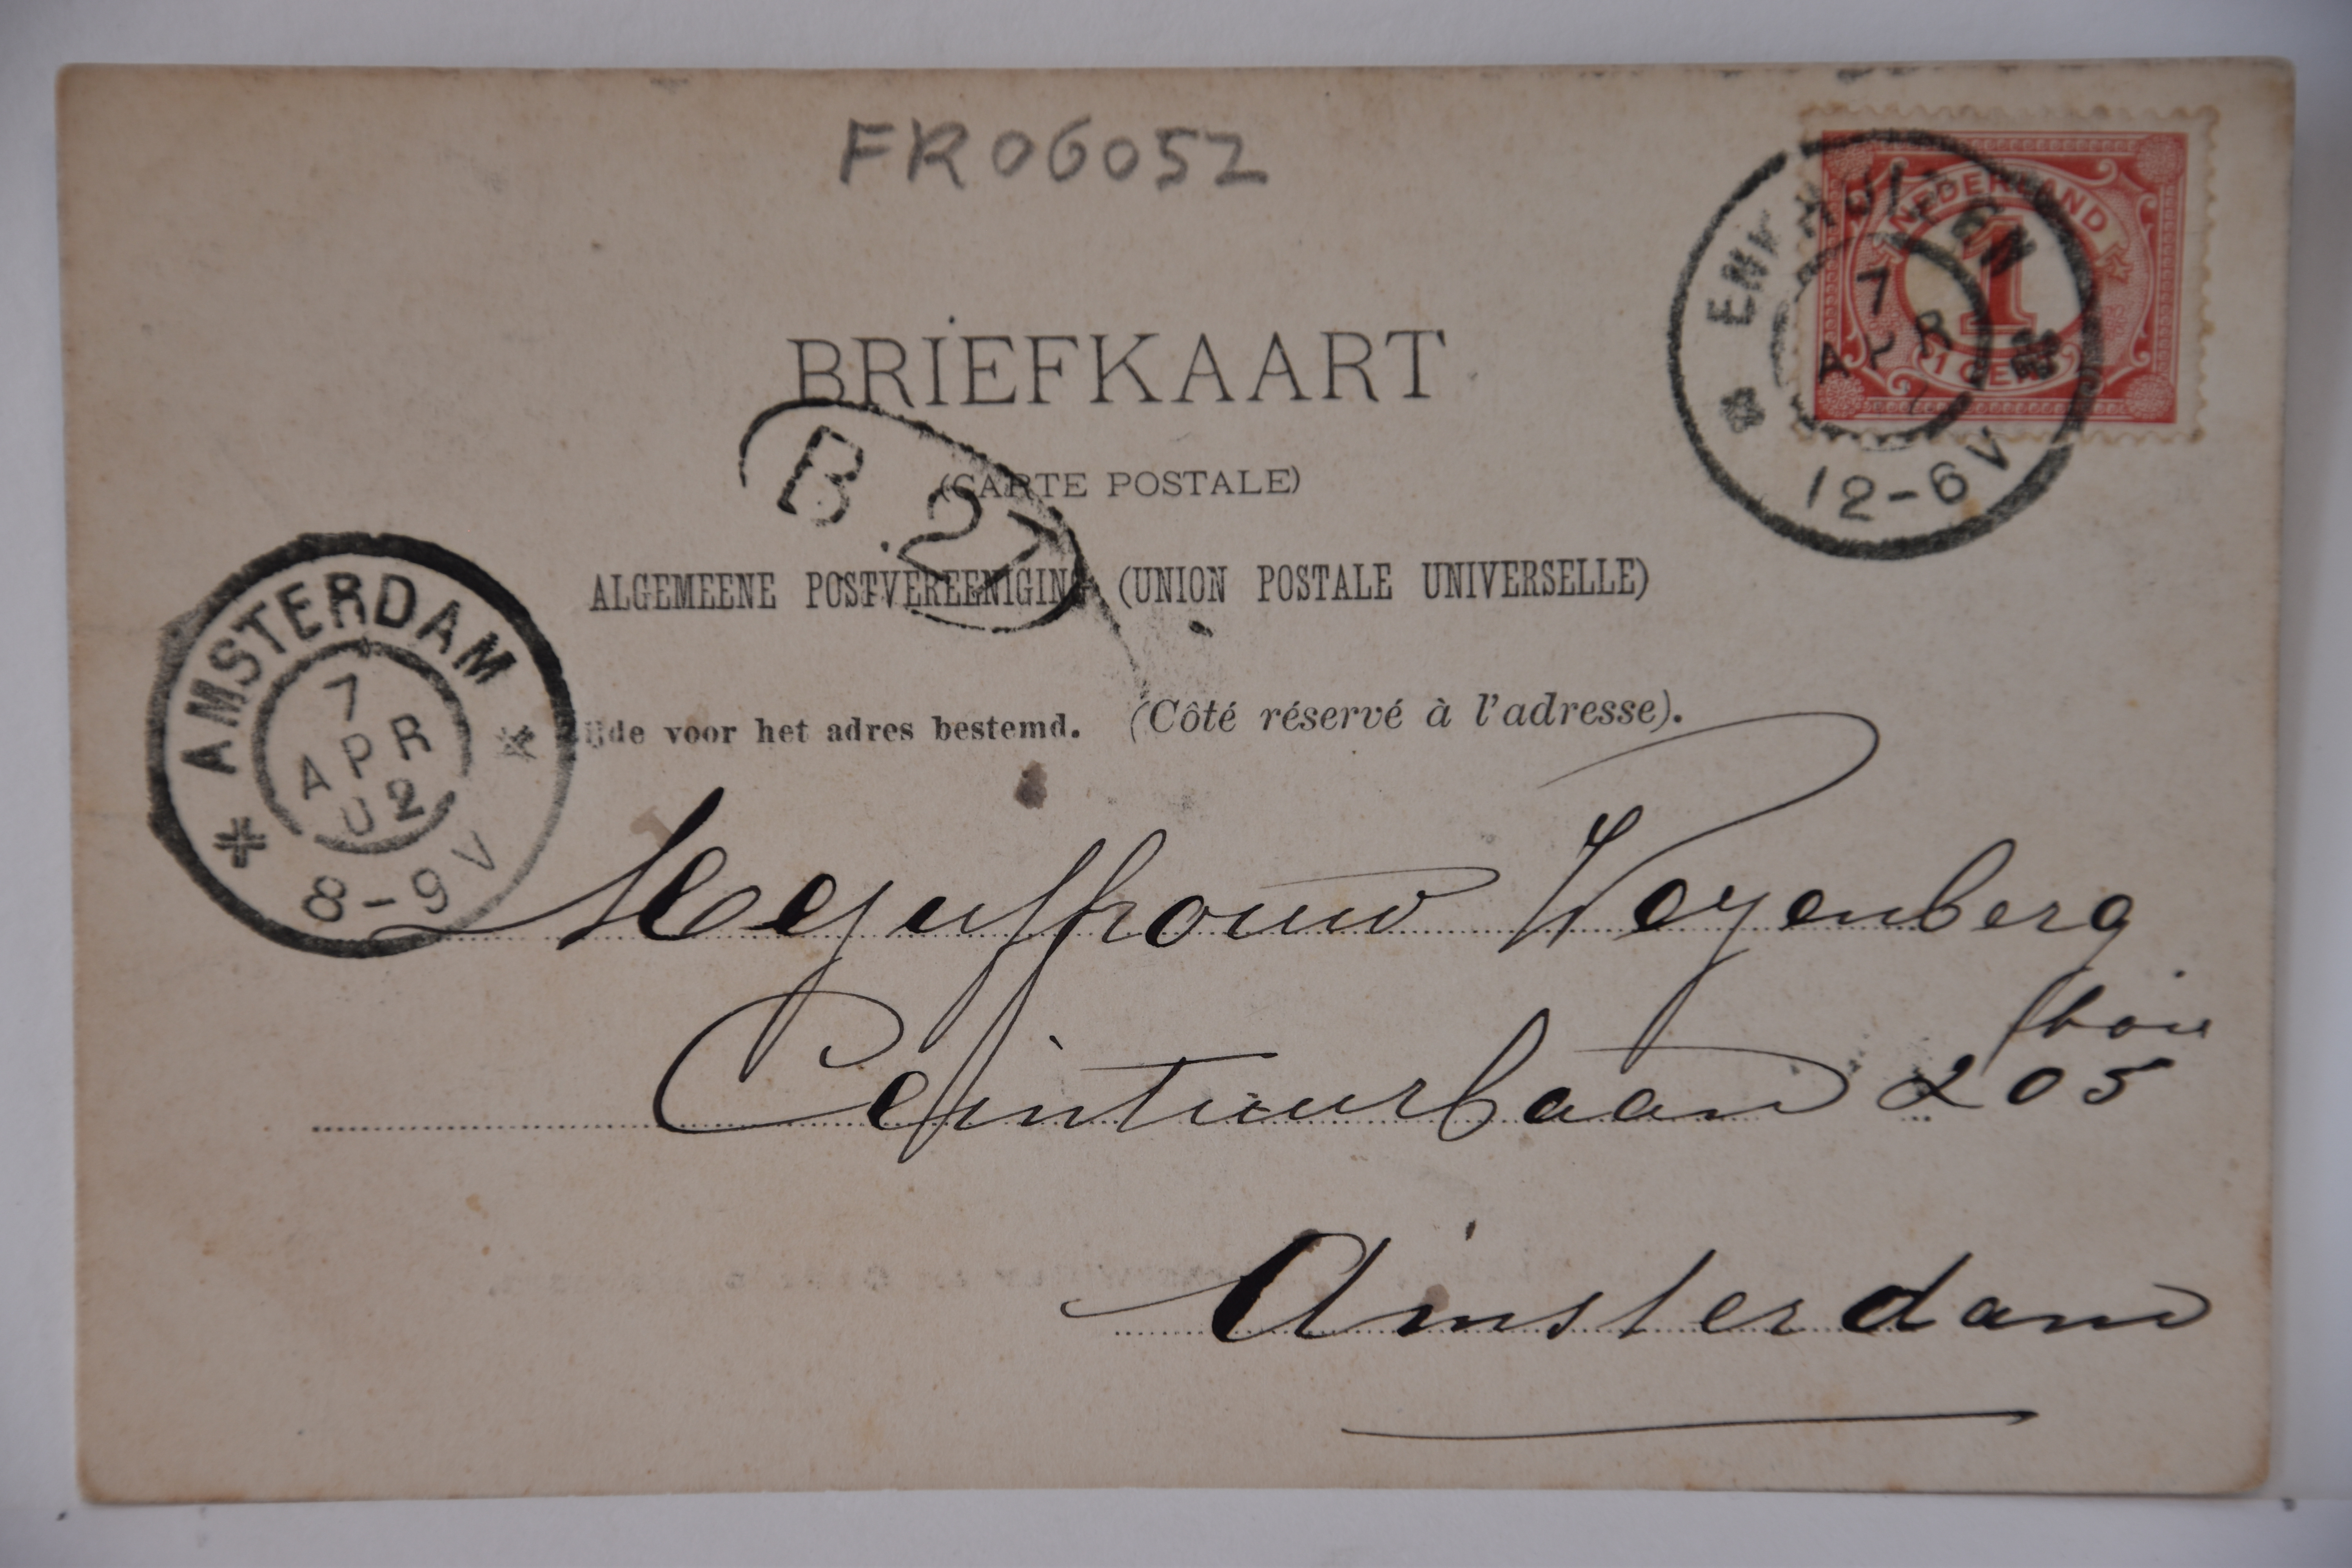 FR06052
NEDERLAND
1
1 CENT
ENKHUIZEN
7
APR
12-6V
BRIEFKAART
(CARTE POSTALE)
B. 27
ALGEMEENE POSTVEREENIGING (UNION POSTALE UNIVERSELLE)
AMSTERDAM
7
APR
02
8-9V
ijde voor het adres bestemd. (Côté réservé à l'adresse).
Mejufhouw Weyenberg
Ceintuurbaan 205
Amsterdam